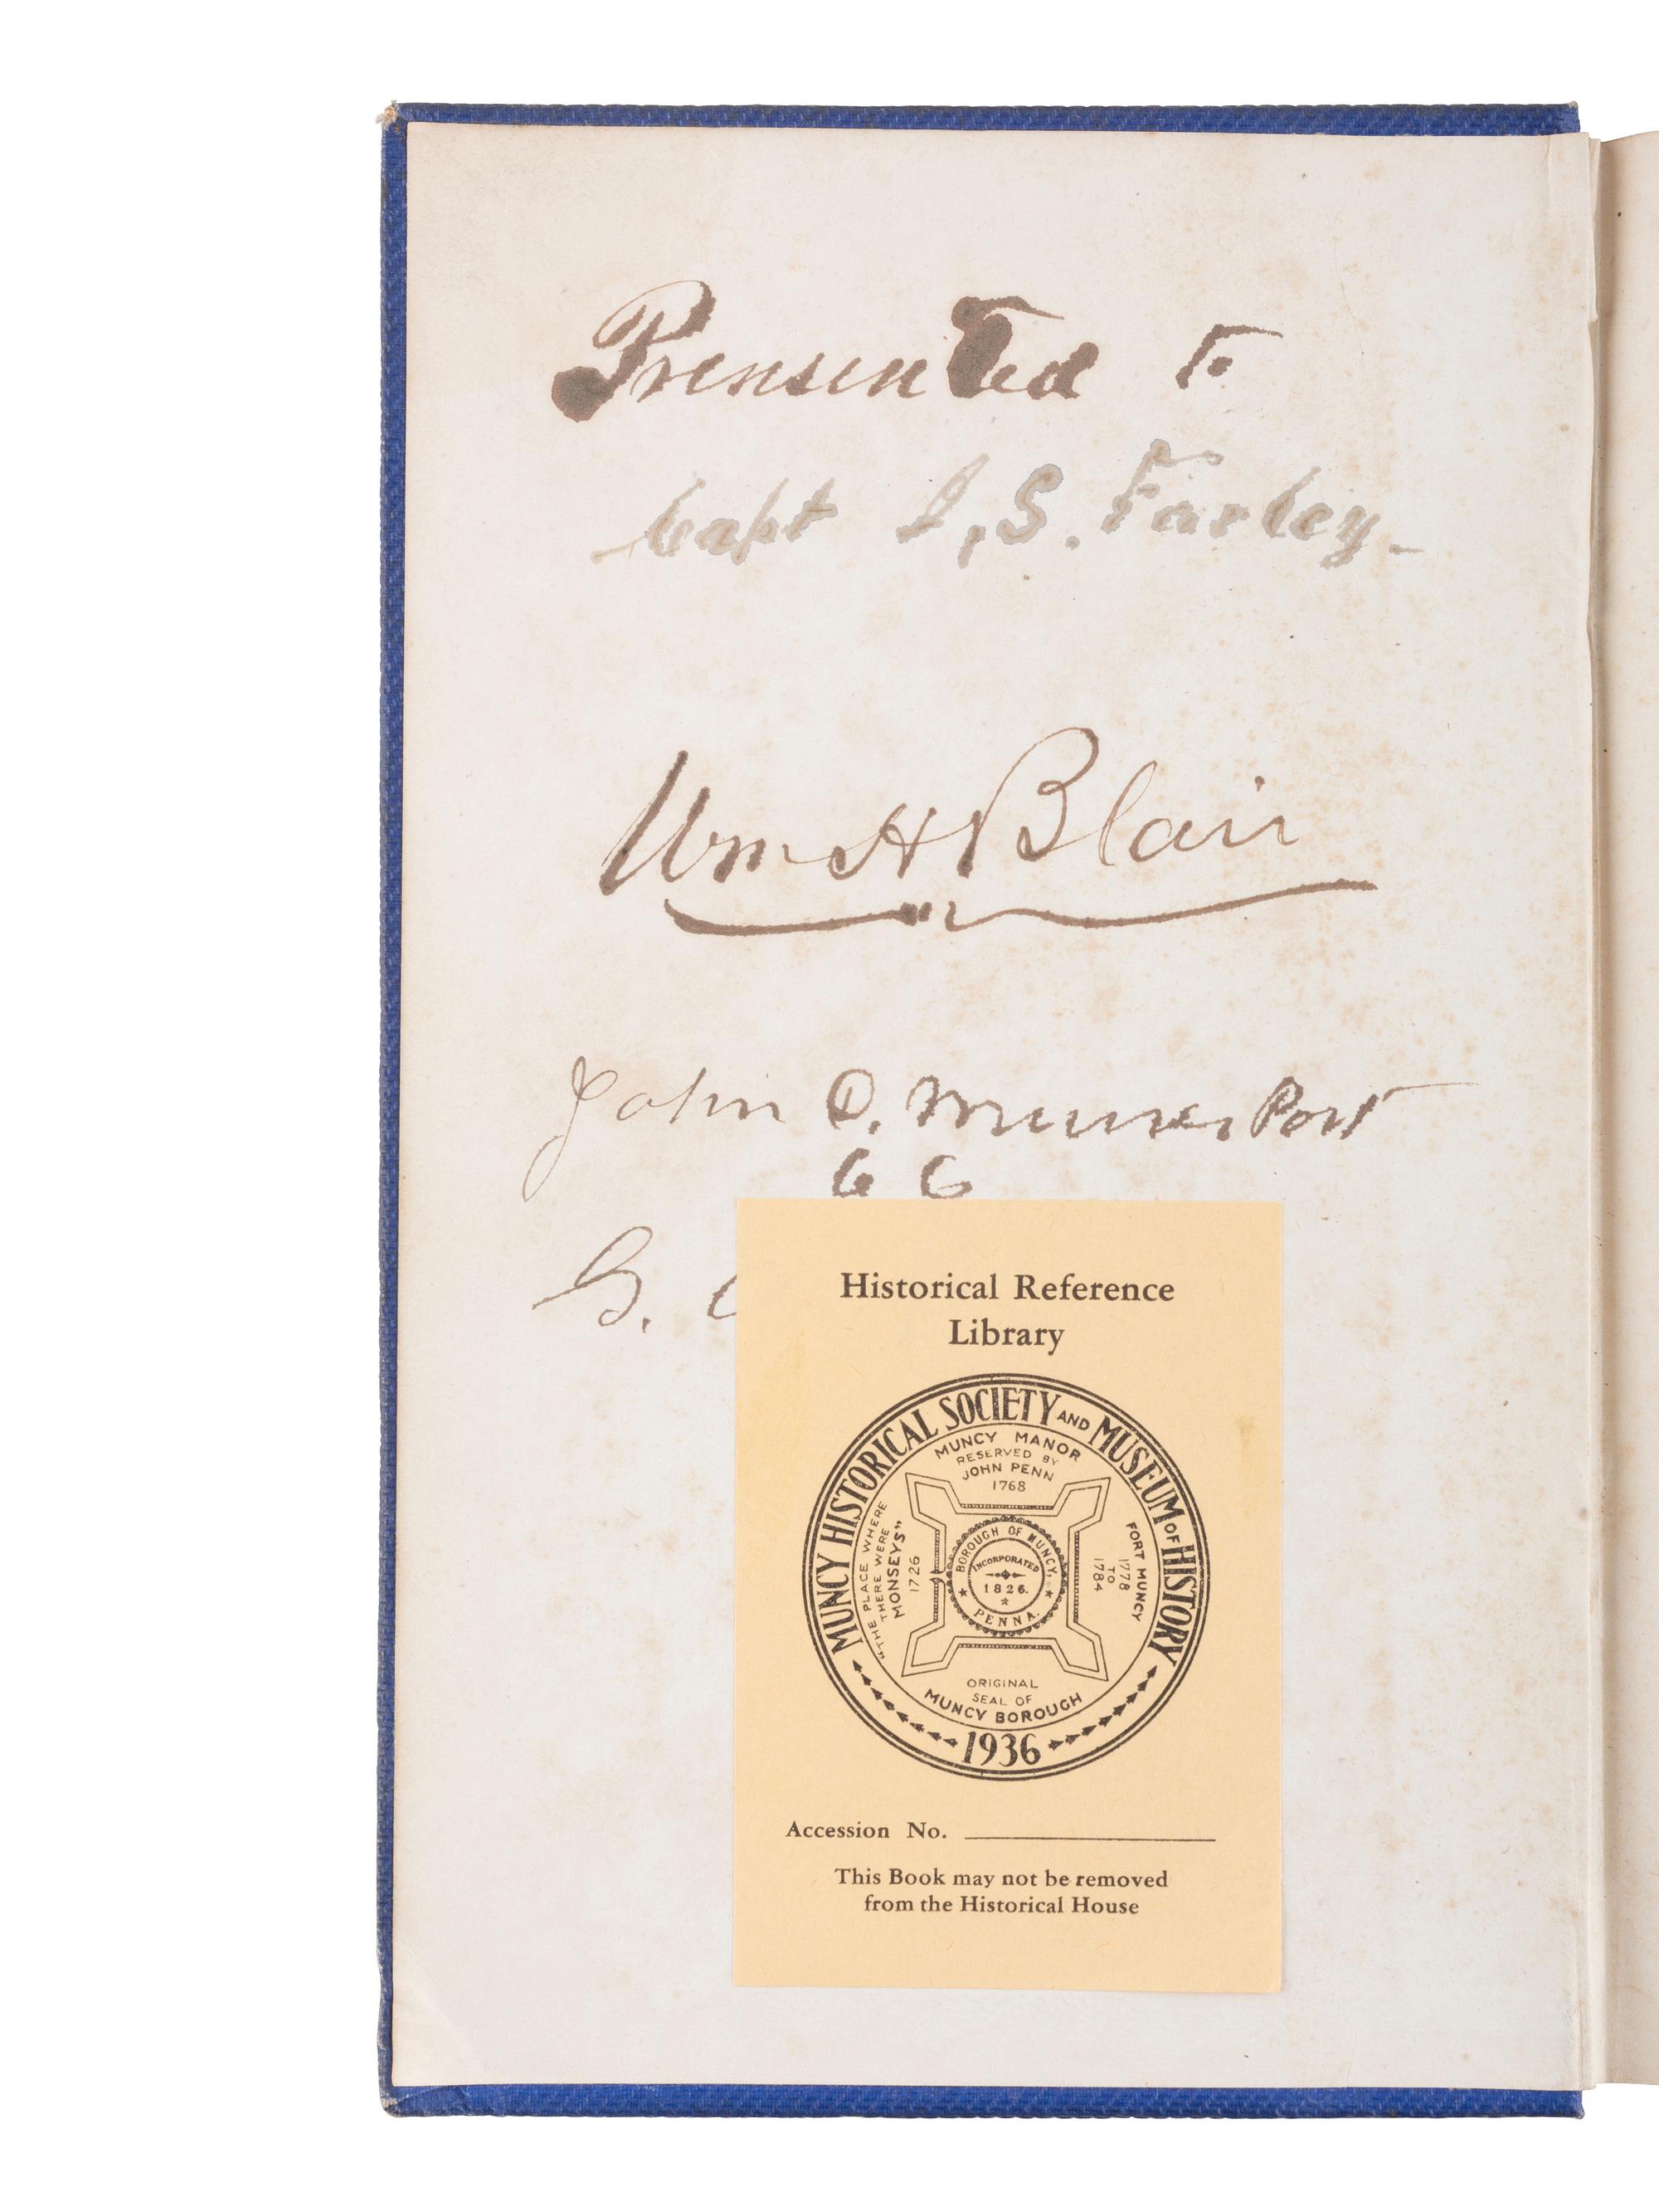 Prensented To
Capt I, S. Farley-
Wm H Blair
John O. Post
66
G.
Historical Reference
Library
MUNCY HISTORICAL SOCIETY AND MUSEUM OF HISTORY
MUNCY MANOR
RESERVED BY
JOHN PENN
1768
"THE PLACE WHERE
THERE WERE
MONSEYS"
1726
FORT MUNCY
1778
TO
1784
BOROUGH OF MUNCY,
INCORPORATED
1826.
PENNA.
ORIGINAL
SEAL OF
MUNCY BOROUGH
1936
Accession No.
This Book may not be removed
from the Historical House